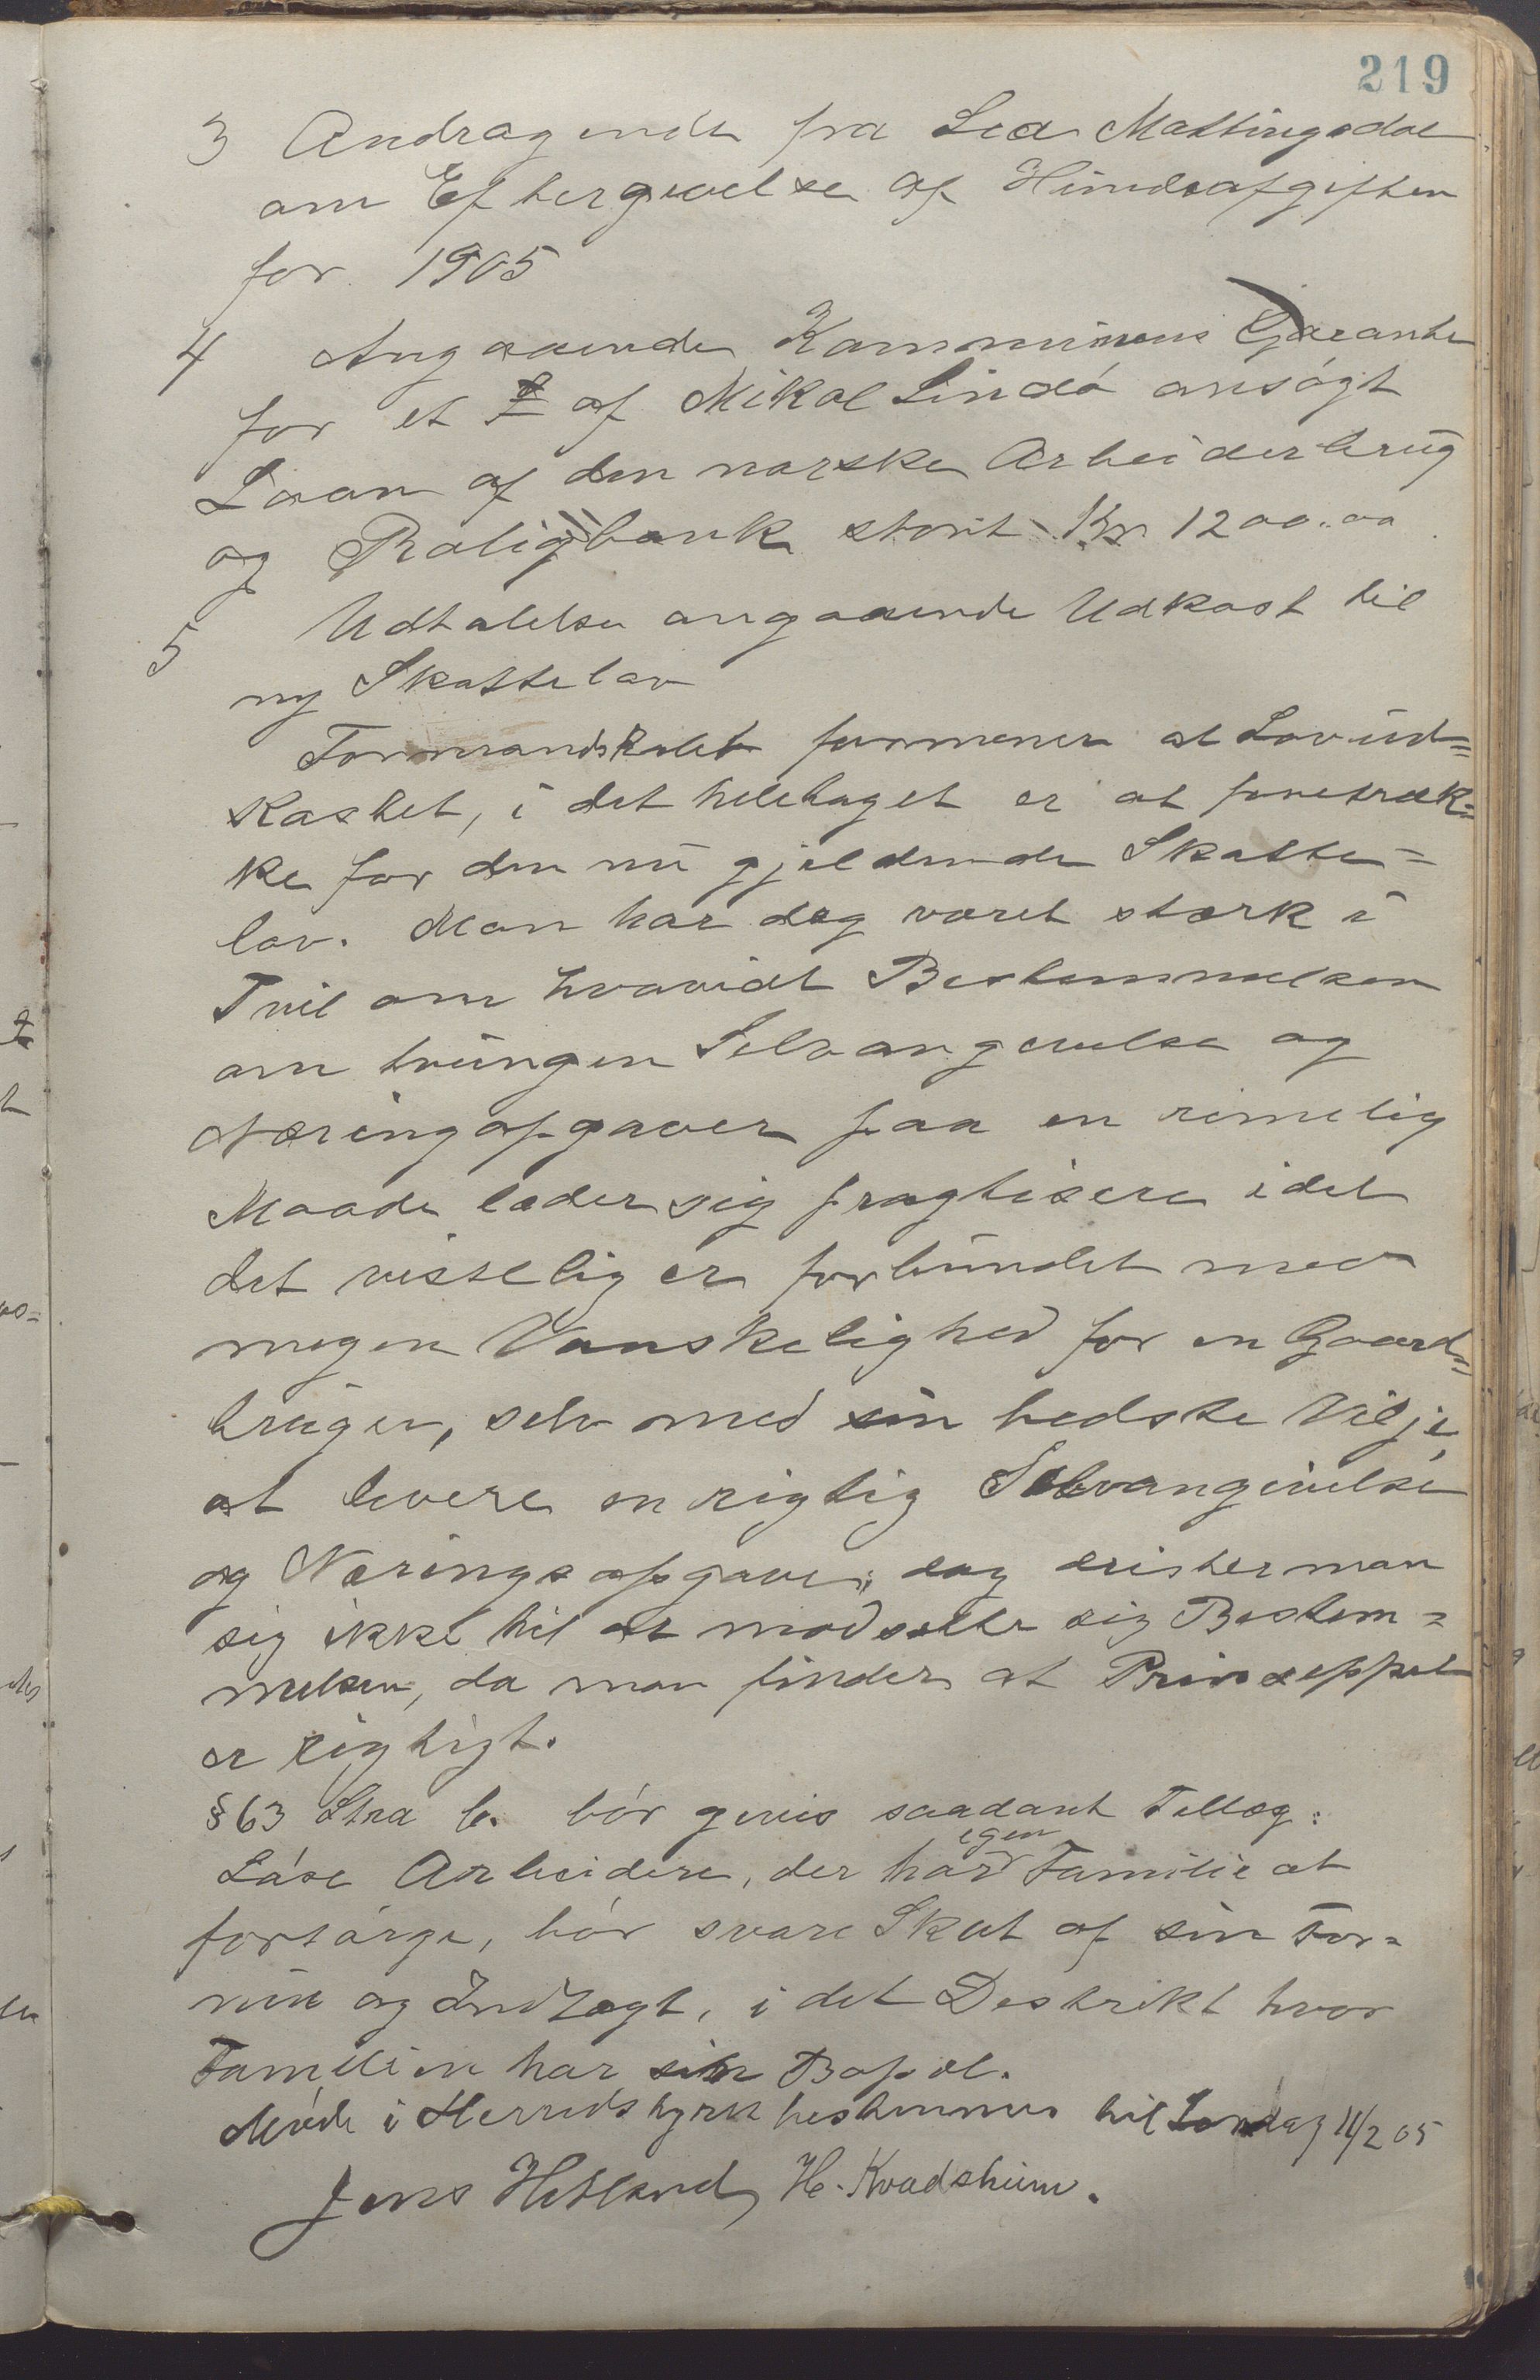 219
3 Andragende fra Lea Mattingsdal
om Eftergivelse af Hundeafgiften
for 1905
4 Angaaende Kommunens Garanti
for et af Mikal Lindö ansögt
Laan af den norske Arbeiderbrug
og Boligbank stort Kr 1200.00
5 Udtalelse angaaende Udkast til
ny Skattelov
Formandskabet formener at Lovud=
kastet, i det heletaget er at foretræk=
ke for den nu gjeldende Skatte=
lov. Man har dog været stærk i
Tvil om hvorvidt Bestemmelsen
om tvungen Selvangivelse og
Næringopgaver paa en rimelig
Maade lader sig pragtisere idet
det visselig er forbundet med
megen Vanskelighed for en Gaard=
bruger, selv med sin bedste Vilje,
at levere en rigtig Selvangivelse
og Næringsopgave; dog drister man
sig ikke til at modsætte sig Bestem=
melsen, da man finder at Prinseppet
er rigtigt.
§63 Ltra b. bör givis saadant Tillæg:
Löse Arbeidere, der har egen Familie at
forsörge, bör svare Skat af sin For=
mue og Indtægt, i det Destrikt hvor
Familien har sin Bopæl.
Möde i Herredstyret bestemmes til Lördag 11/2 05
Jens Hetland H. Kvadsheim.